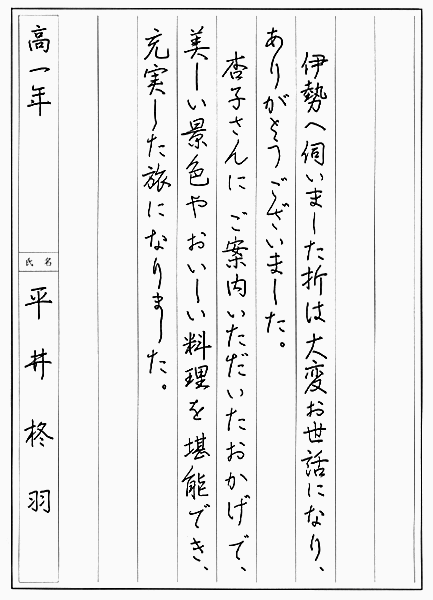 伊勢へ伺いました折は大変お世話になり、
ありがとうございました。
杏子さんにご案内いただいたおかげで、
美しい景色やおいしい料理を堪能でき、
充実した旅になりました。
高一年
氏名
平井柊羽